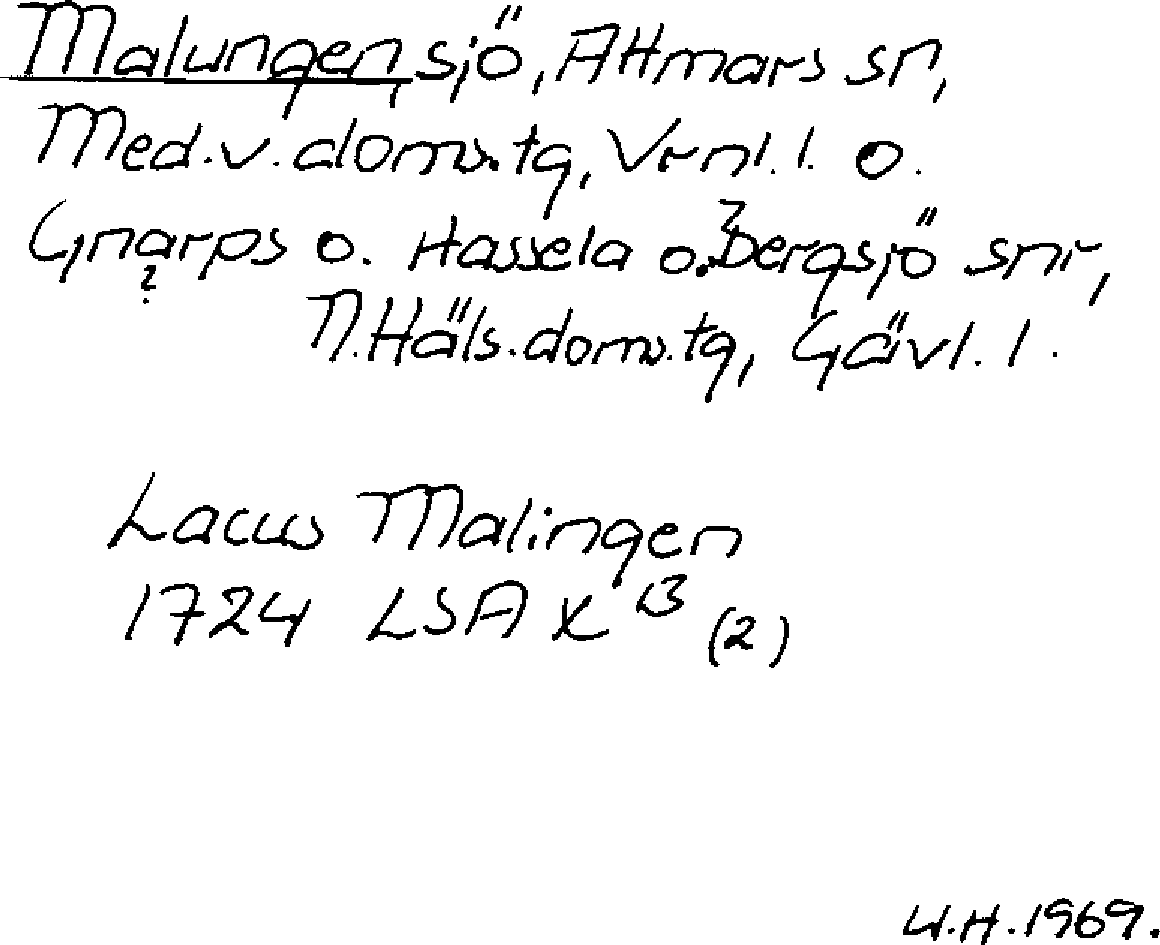 Malungen, sjö, Attmars sn,
Med.v.doms.tg, Vrnl.l. o.
Gnarps o. Hassela o. Bergsjö snr,
?
N.Häls.doms.tg, Gävl.l.
Lacus Malingen
1724 LSA X 13 (2)
U.H.1969.